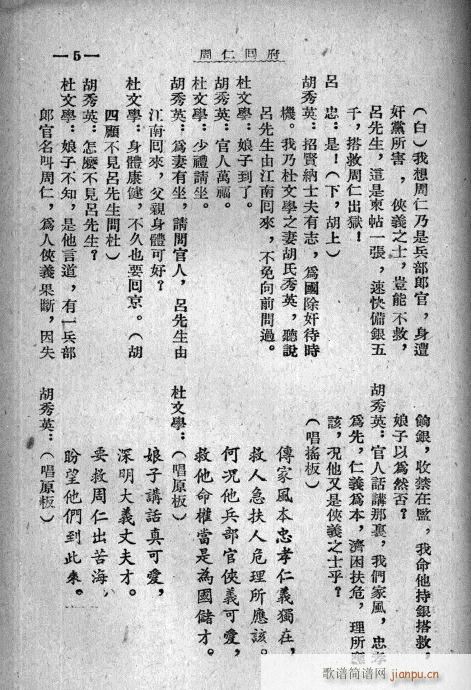 —5—
周仁回府
(白)我想周仁乃是兵部郎官，身遭
奸黨所害，俠義之士，豈能不救，
呂先生，這是柬帖一張，速快備銀五
千，搭救周仁出獄！
呂　忠：是！(下，胡上)
胡秀英：招賢納士夫有志，為國除奸待時
機。我乃杜文學之妻胡氏秀英，聽說
呂先生由江南回來，不免向前問過。
杜文學：娘子到了。
胡秀英：官人萬福。
杜文學：少禮請坐。
胡秀英：為妻有坐，請問官人，呂先生由
江南回來，父親身體可好？
杜文學：身體康健，不久也要回京。(胡
四顧不見呂先生問杜)
胡秀英：怎麼不見呂先生？
杜文學：娘子不知，是他言道，有一兵部
郎官名叫周仁，為人俠義果斷，因失
餉銀，收禁在監，我命他持銀搭救，
娘子以為然否？
胡秀英：官人話講那裏，我們家風，忠孝
為先，仁義為本，濟困扶危，理所應
該，況他又是俠義之士乎？
(唱搖板)
傳家風本忠孝仁義獨在，
救人急扶人危理所應該。
何況他兵部官俠義可愛，
救他命權當是為國儲才。
杜文學：(唱原板)
娘子講話真可愛，
深明大義丈夫才。
要救周仁出苦海，
盼望他們到此來。
胡秀英：(唱原板)
歌谱简谱网
jianpu.cn